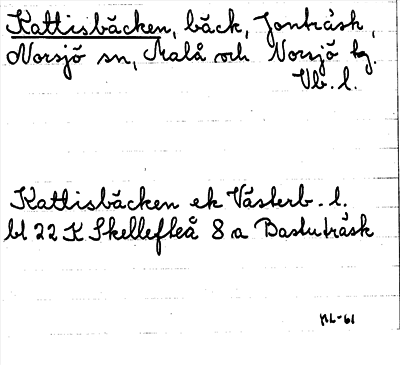 Kattisbäcken, bäck, Jonträsk,
Norsjö sn, Malå och Norsjö tg.
Vb. l.
Kattisbäcken ek Västerb. l.
bl 22 K Skellefteå 8 a Bastuträsk
ML-61